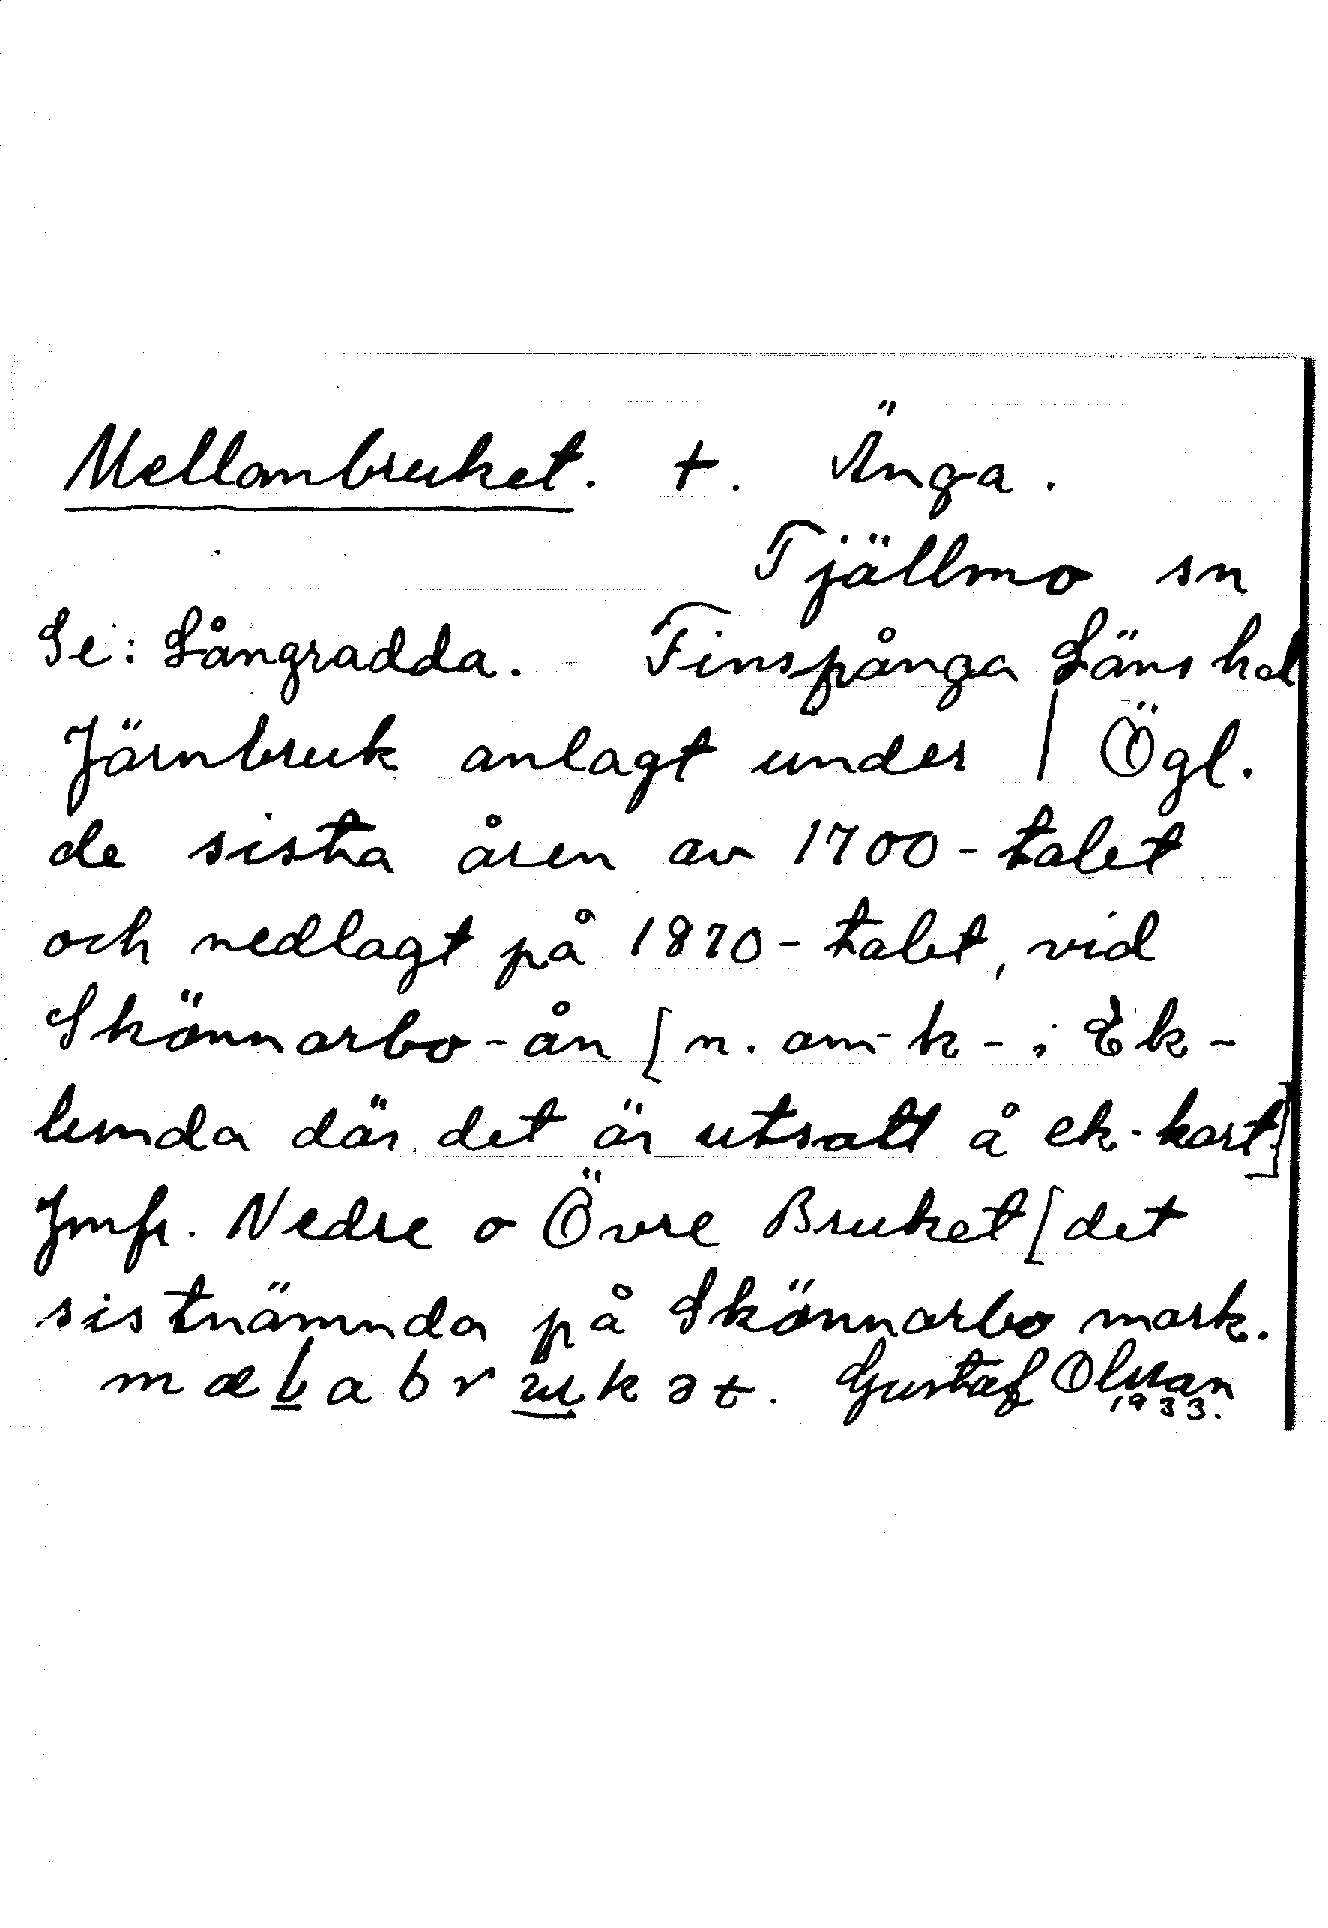 Mellanbruket. +. Änga.
Tjällmo sn
Se: Långradda. - Finspånga Läns hd
Järnbruk anlagt under | Ögl.
de sista åren av 1700-talet
och nedlagt på 1870-talet, vid
Skönnarbo-ån [n. om k- i Ek-
lunda där det är utsatt å ek-kart]
Jmfr. Nedre o Övre Bruket [det
sistnämnda på Skönnarbo mark.
mælabrukət. Gustaf Olsson
1933.